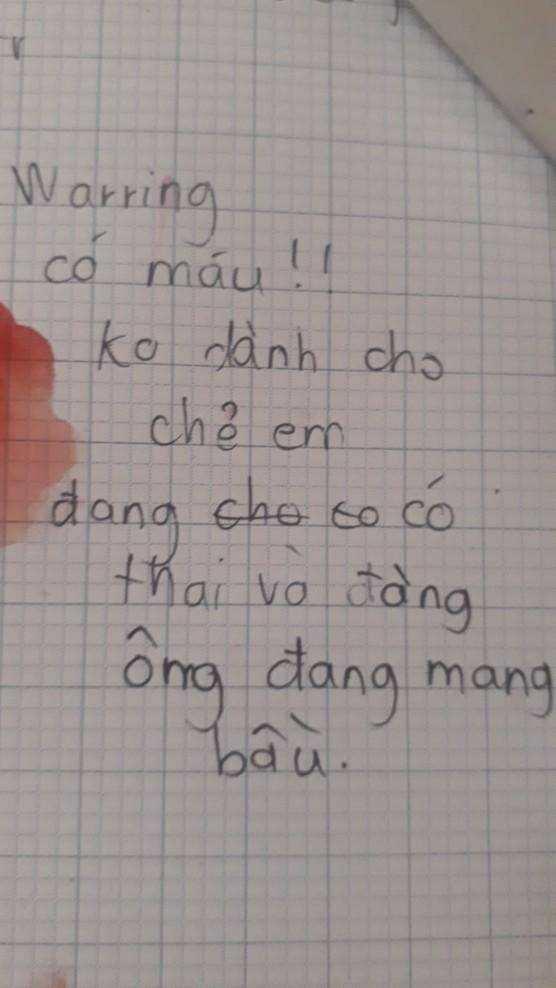 Warring
có máu!!
ko dành cho
chẻ em
đang cho co có
thai vò đàng
ông đang mang
bầù.